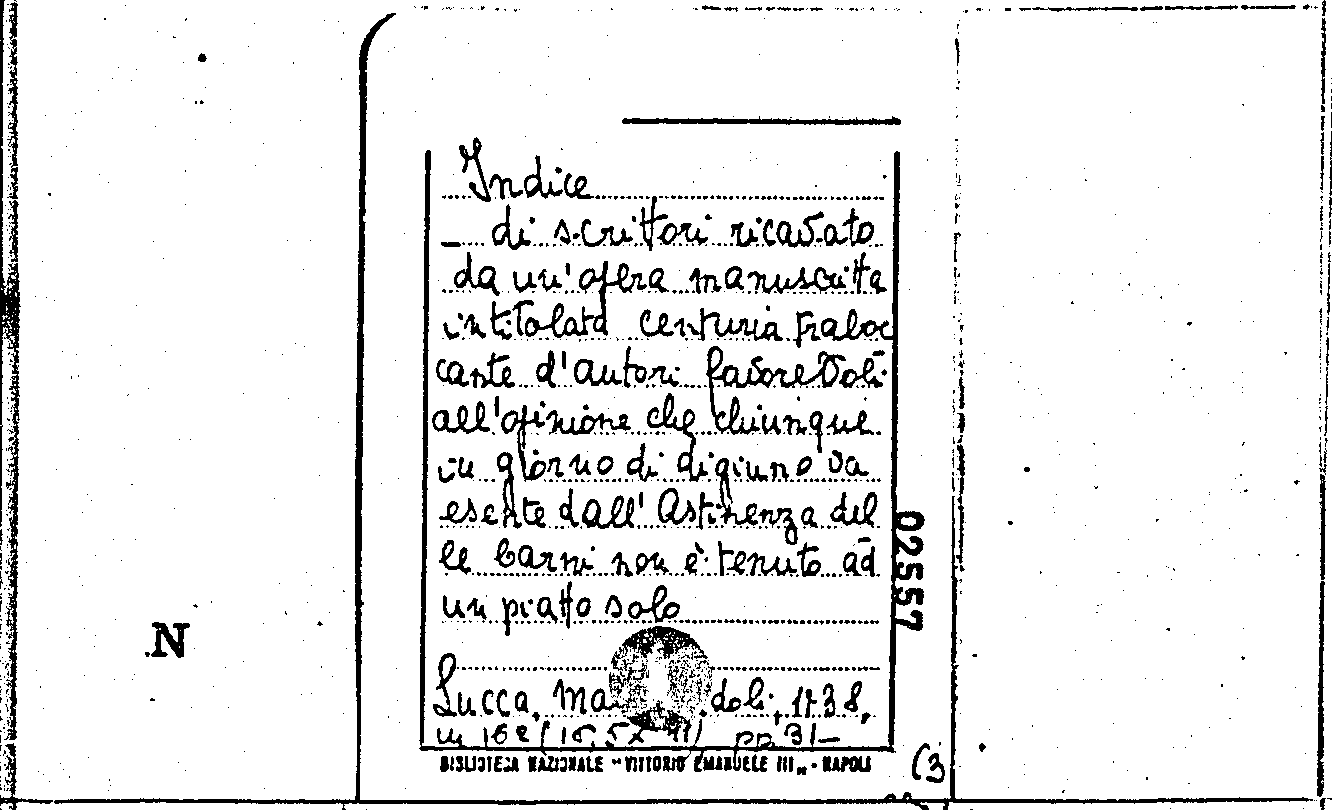 Indice
_ di scrittori ricavato
da un'opera manuscritta
intitolata centuria traboc
cante d'autori favorevoli
all'opinione che chiunque
in giorno di digiuno va
esente dall'Astinenza del
le Carni non è tenuto ad
un piatto solo
Lucca, doli, 1738,
in 16º (16,5x11) pp 31-
BIBLIOTECA NAZIONALE "VITTORIO EMANUELE III" - NAPOLI
02557
N
(3